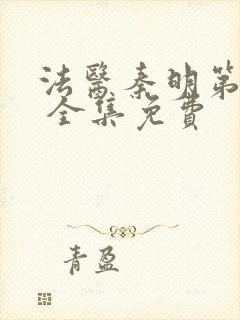 法醫秦明第
全集免費
青盈